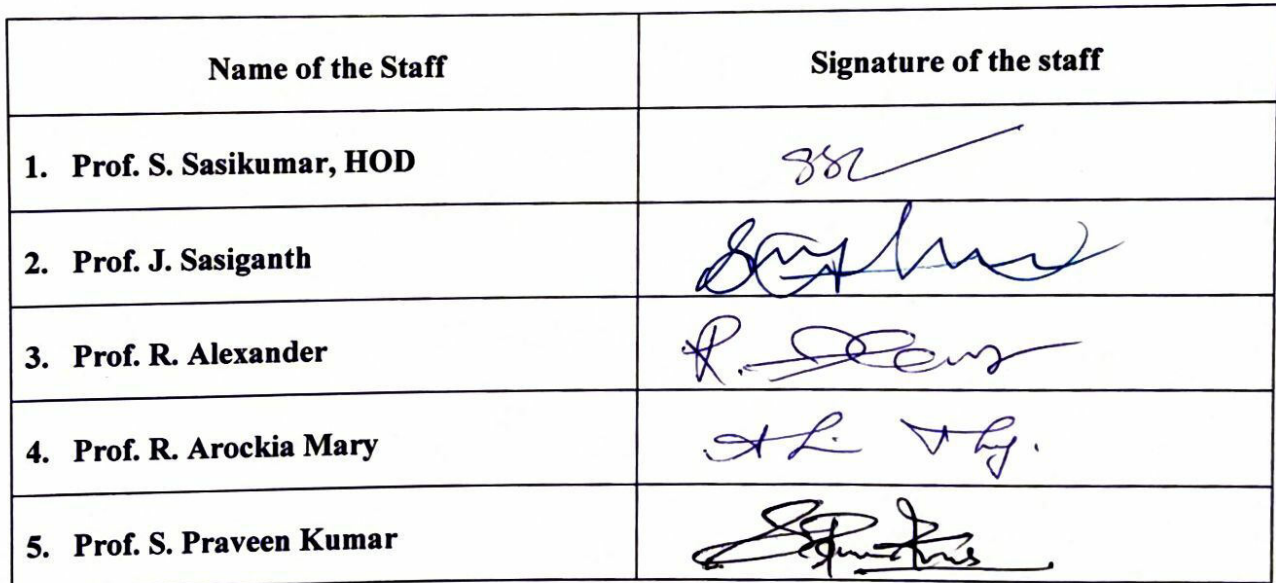 Name of the Staff
Signature of the staff
1. Prof. S. Sasikumar, HOD
2. Prof. J. Sasiganth
3. Prof. R. Alexander
4. Prof. R. Arockia Mary
5. Prof. S. Praveen Kumar